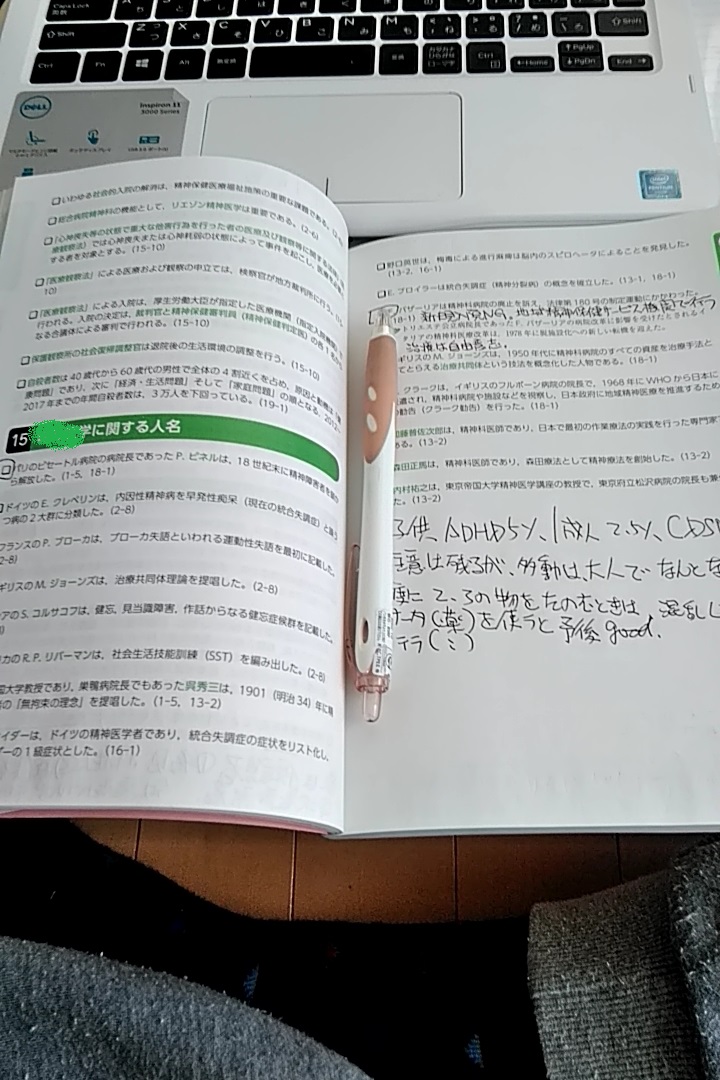 Caps Lock
Shift
Z
X
C
V
B
N
M
Shift
Ctrl
Fn
Alt
Ctrl
Home
PgUp
PgDn
End
DELL
Inspiron 11
3000 Series
□いわゆる社会的入院の解消は、精神保健医療福祉施策の重要な課題である。
□総合病院精神科の機能として、リエゾン精神医学は重要である。(2-6)
□「心神喪失等の状態で重大な他害行為を行った者の医療及び観察等に関する
療観察法）では心神喪失または心神耗弱の状態によって事件を起こし、
する者を対象とする。(15-10)
□「医療観察法」による医療および観察の申立ては、検察官が地方裁判所に行う。
10)
□「医療観察法」による入院は、厚生労働大臣が指定した医療機関（指定入院医療機関）で
行われる。入院の決定は、裁判官と精神保健審判員（精神保健判定医）の各1名から
なる合議体による審判で行われる。(15-10)
□保護観察所の社会復帰調整官は退院後の生活環境の調整を行う。(15-10)
□自殺者数は40歳代から60歳代の男性で全体の4割近くを占め、原因と動機は
康問題」であり、次に「経済・生活問題」そして「家庭問題」の順となる。
2017年までの年間自殺者数は、3万人を下回っている。(19-1)
15
学に関する人名
□パリのビセートル病院の病院長であったP. ピネルは、18世紀末に精神障害者を
ら解放した。(1-5, 18-1)
□ドイツのE. クレペリンは、内因性精神病を早発性痴呆（現在の統合失調症）と
つ病の2大群に分類した。(2-8)
フランスのP. ブローカは、ブローカ失語といわれる運動性失語を最初に記載した。
2-8)
ギリスのM. ジョーンズは、治療共同体理論を提唱した。(2-8)
アのS. コルサコフは、健忘、見当識障害、作話からなる健忘症候群を記載した。
カのR. P. リバーマンは、社会生活技能訓練（SST）を編み出した。(2-8)
国大学教授であり、巣鴨病院長でもあった呉秀三は、1901（明治34）年に
の「無拘束の理念」を提唱した。(1-5, 13-2)
イダーは、ドイツの精神医学者であり、統合失調症の症状をリスト化し、
ダーの1級症状とした。(16-1)
□野口英世は、梅毒による進行麻痺は脳内のスピロヘータによることを発見した。
(13-2, 16-1)
□E. ブロイラーは統合失調症（精神分裂病）の概念を確立した。(13-1, 18-1)
バザーリアは精神科病院の廃止を訴え、法律第180号の制定運動にかかわった。
18-1) 新規入院NG。地域精神保健サービス機関で行う
トリエステ
治療は自由意志。
ギリスのM. ジョーンズは、1950年代に精神科病院のすべての資産を治療手段と
てとらえる治療共同体という技法を概念化した人物である。(18-1)
クラークは、イギリスのフルボーン病院の院長で、1968年にWHOから日本に
遣され、精神病院や施設などを視察し、日本政府に地域精神医療を推進するため
勧告（クラーク勧告）を行った。(18-1)
加藤普佐次郎は、精神科医師であり、日本で最初の作業療法の実践を行った専門家
ある。(13-2)
森田正馬は、精神科医師であり、森田療法として精神療法を創始した。(13-2)
内村祐之は、東京帝国大学精神医学講座の教授で、東京府立松沢病院の院長も兼
た。(13-2)
子供 ADHD5%、成人2.5%、CDSM
注意は残るが、多動は大人で なんとな
度に 2、3の物をたのむときは、混乱し
を使うと予後good.